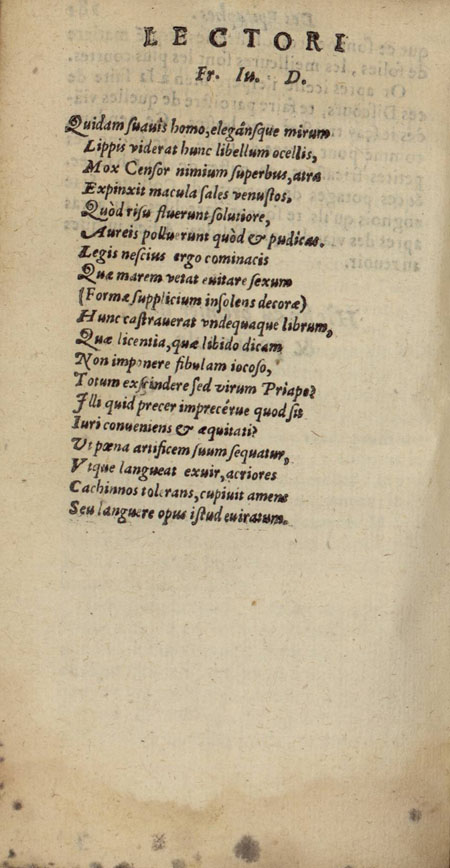 LECTORI
Fr. Iu. D.
Quidam suauis homo, elegánsque mirum
Lippis viderat hunc libellum ocellis,
Mox Censor nimium superbus, atra
Expinxit macula sales venustos,
Quòd risu fluerunt solutiore,
Aureis polluerunt quòd & pudicas.
Legis nescius ergo cominacis
Quæ marem vetat euitare sexum
(Formæ supplicium insolens decoræ)
Hunc castrauerat vndequaque librum,
Quæ licentia, quæ libido dicam
Non imponere fibulam iocoso,
Totum exscindere sed virum Priapo?
Illi quid precer imprecérue quod sit
Iuri conueniens & æquitati?
Vt pœna artificem suum sequatur,
Vtque langueat exuir, acriores
Cachinnos tolerans, cupiuit amens
Seu languere opus istud euiratum.